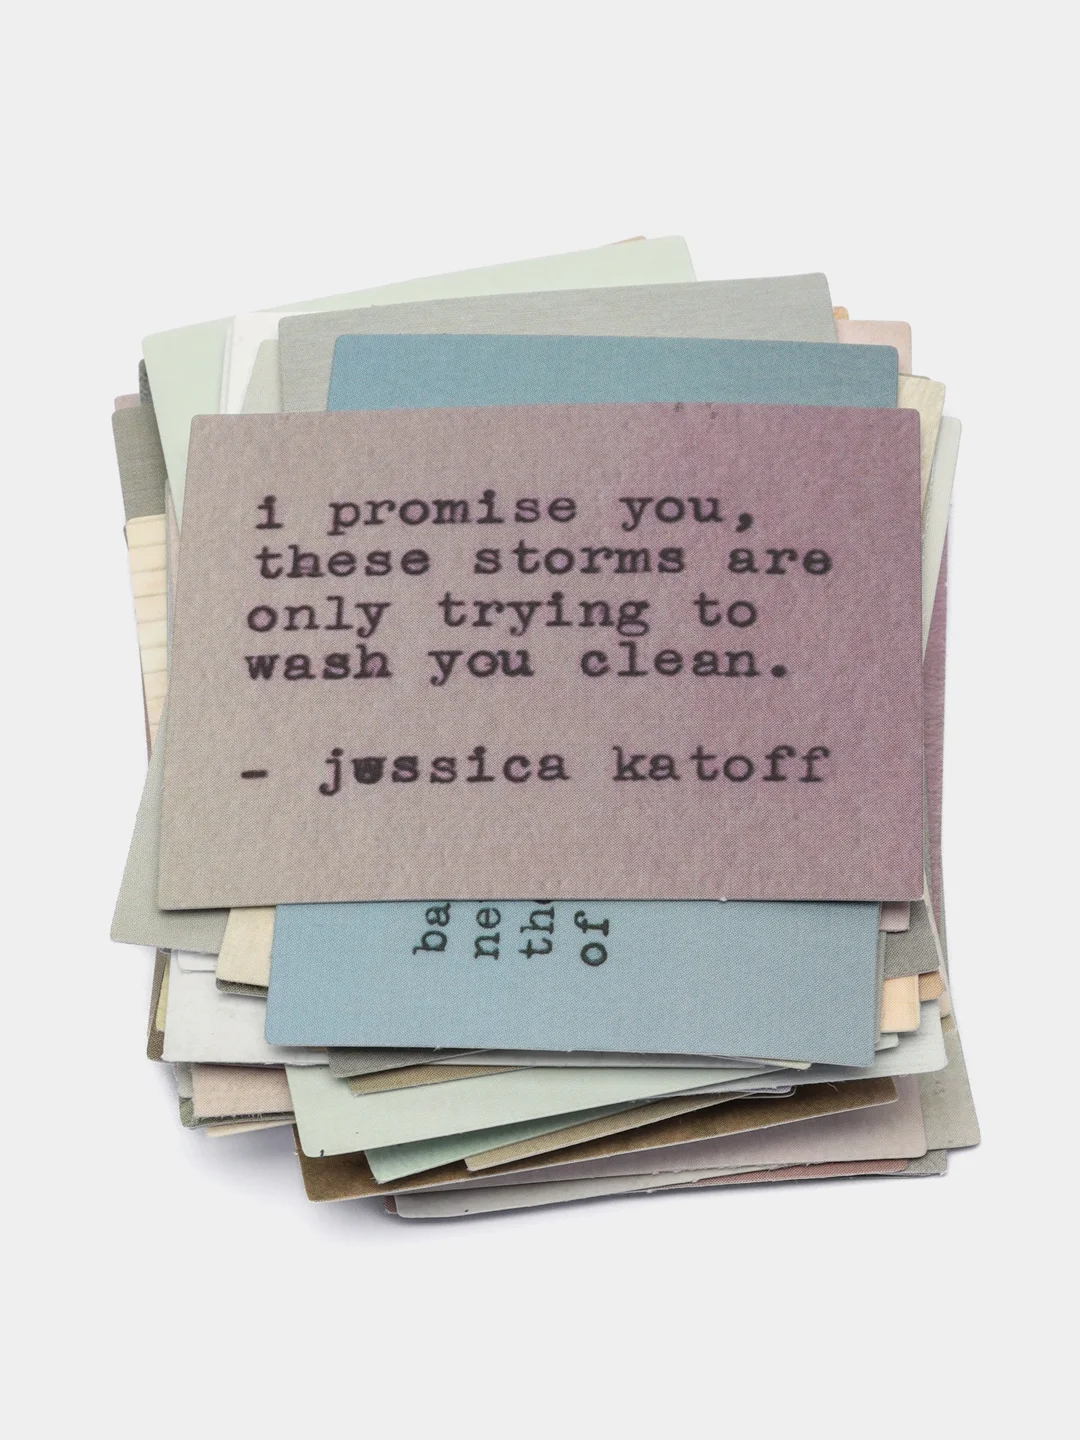 i promise you,
these storms are
only trying to
wash you clean.
- jessica katoff
of